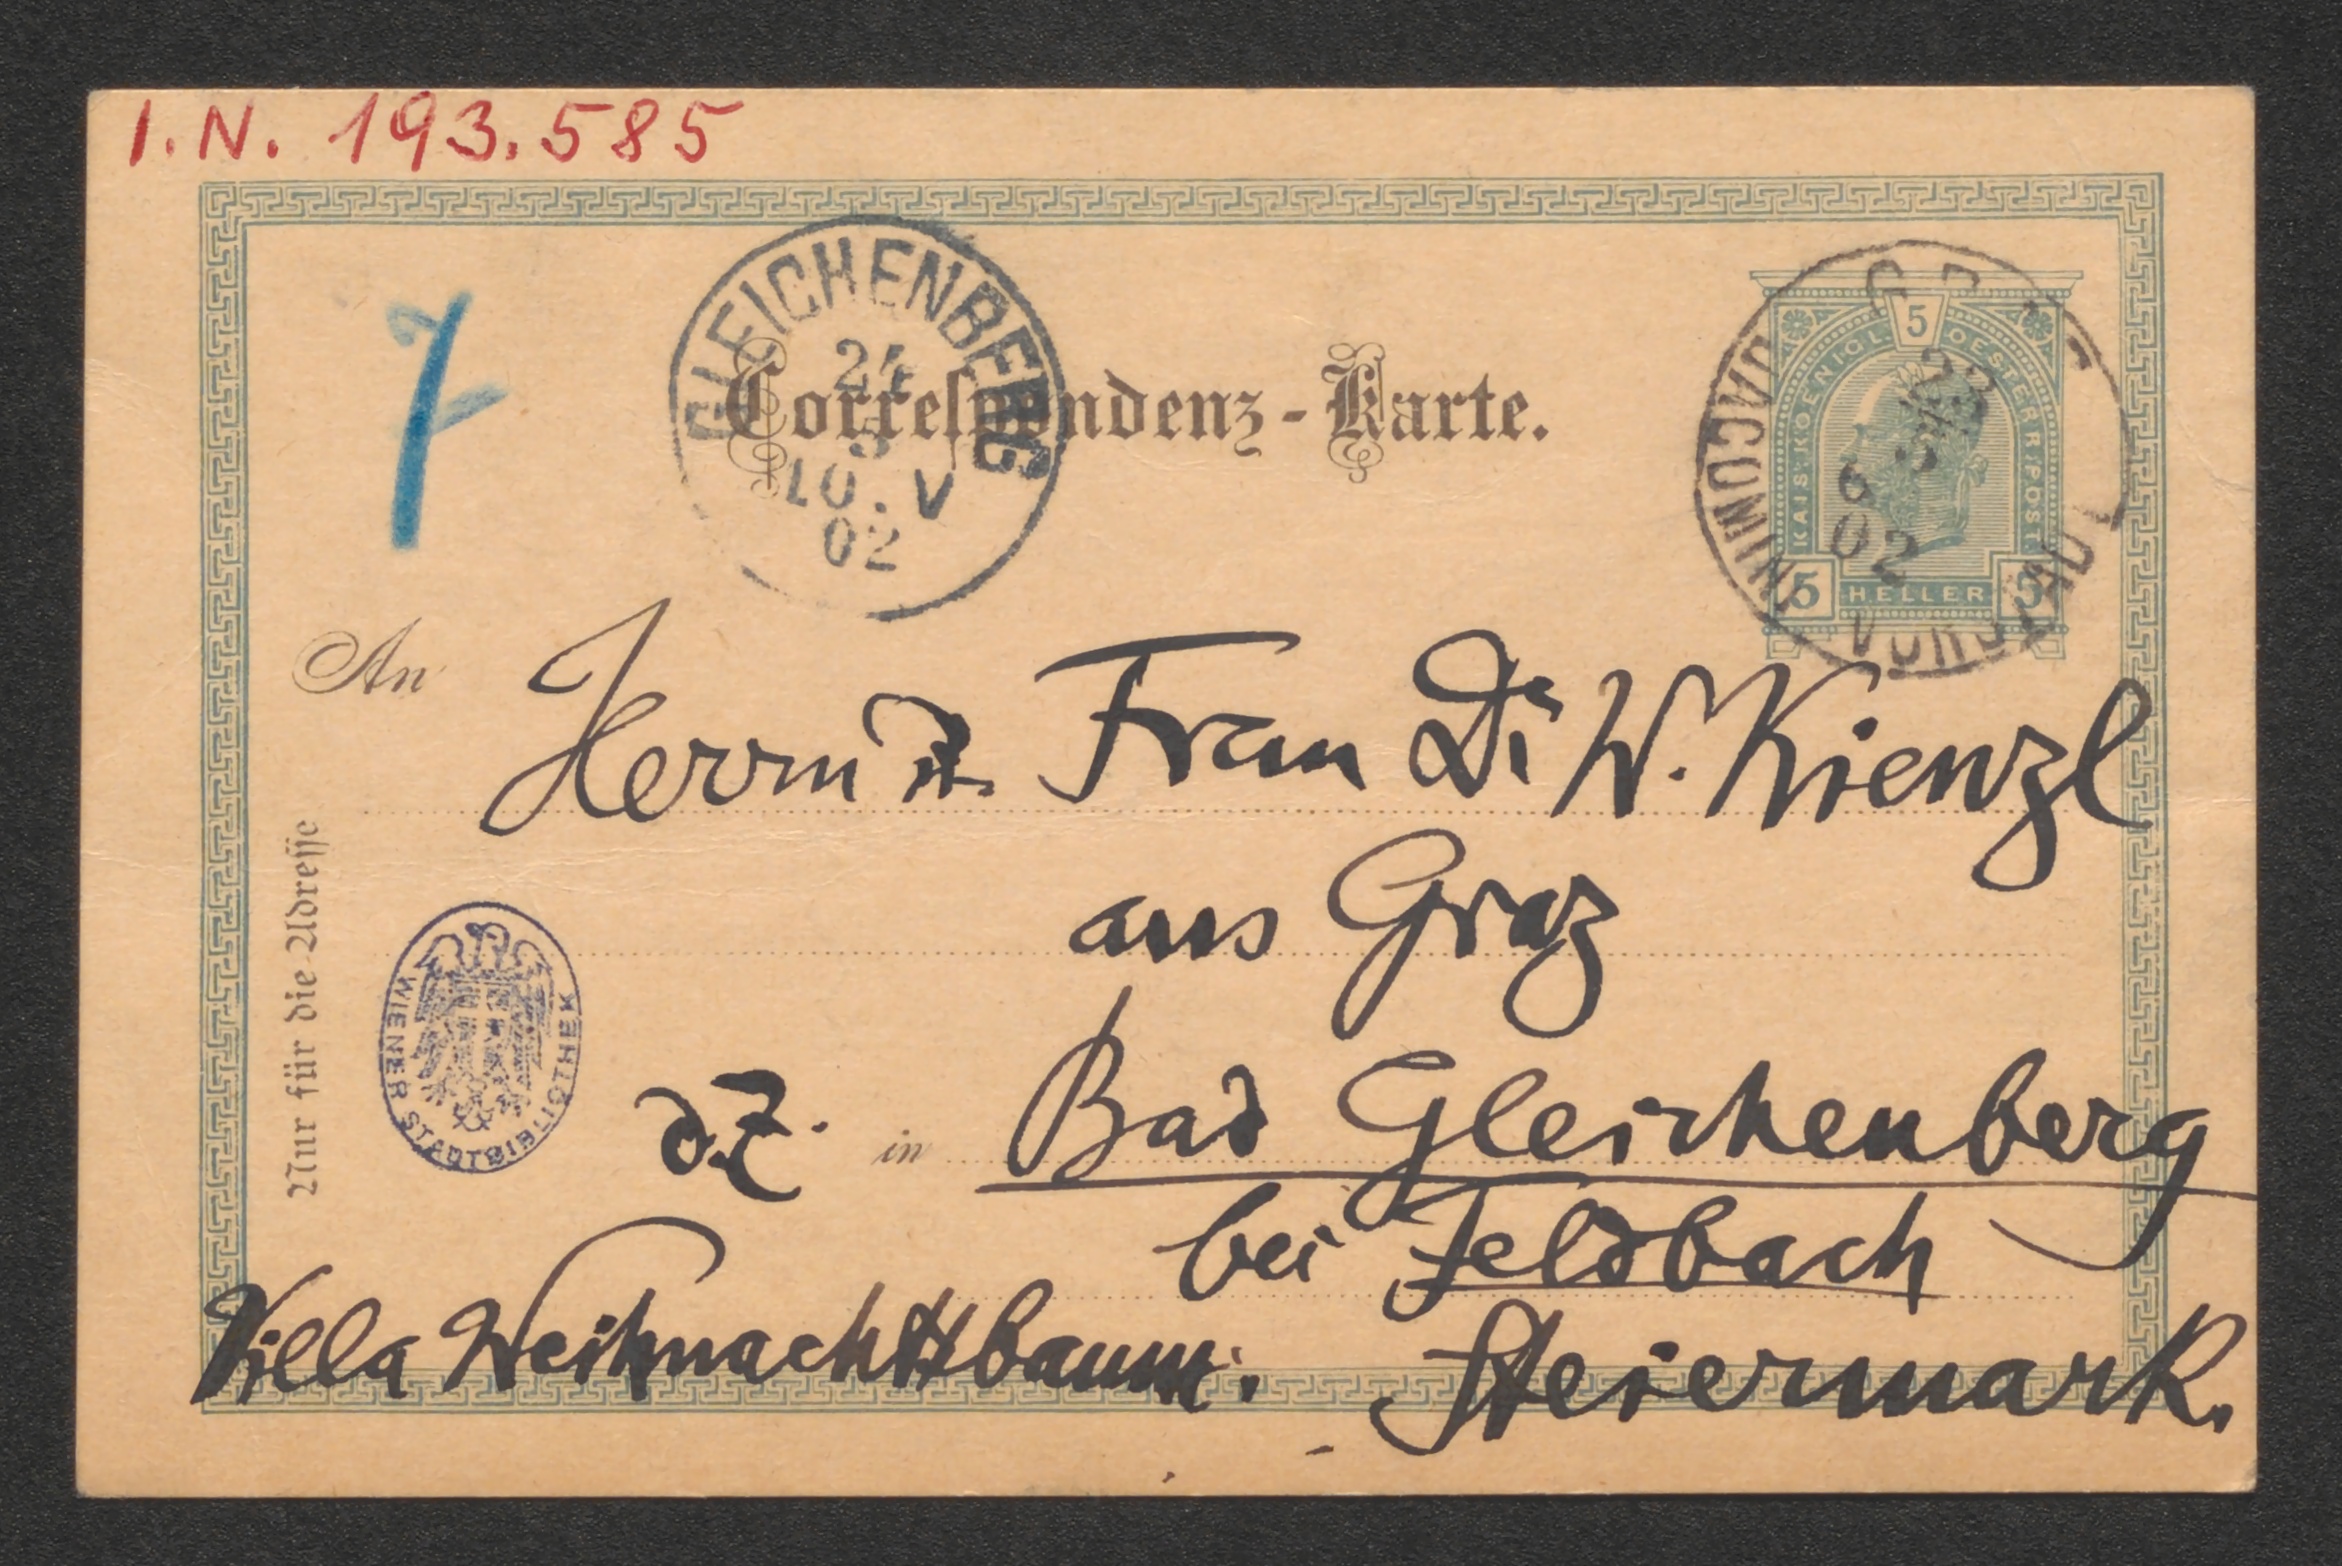 I.N. 193.585
7
GLEICHENBERG
24
5
10.V
02
5
KAIS. KOENIGL. OESTERR. POST
23
5
6
02
JACOMINI
VORSTADT
5 HELLER 5
Correspondenz-Karte.
An Herrn u. Frau Dr W. Kienzl
aus Graz
Nur für die Adresse
WIENER STADTBIBLIOTHEK
d.Z. in Bad Gleichenberg
bei Feldbach
Villa Weihnachtsbaum. Steiermark.